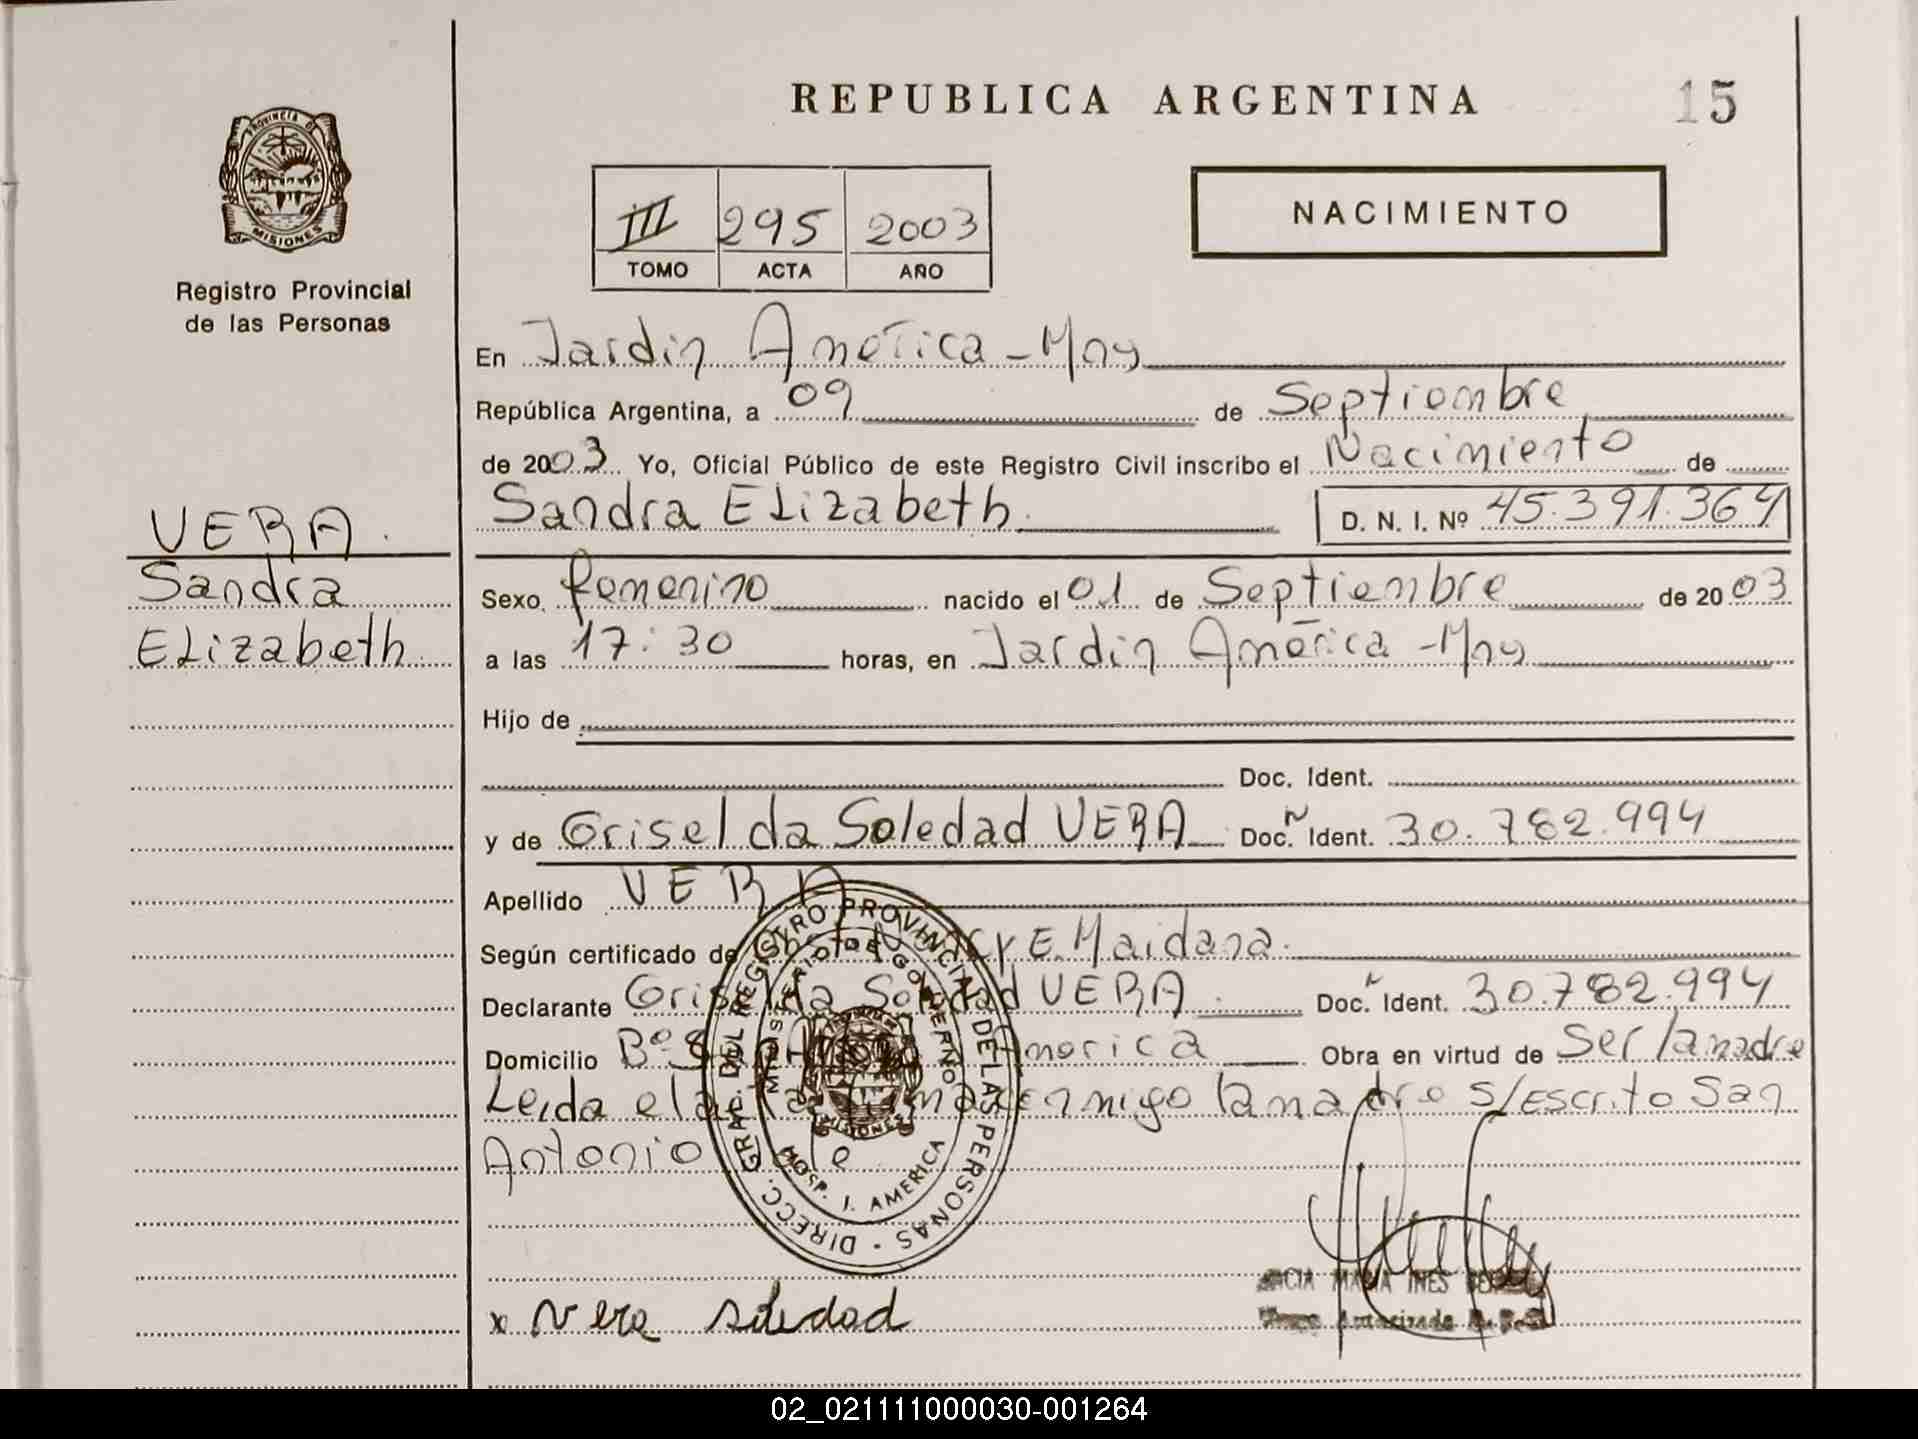 REPUBLICA ARGENTINA
15
PROVINCIA DE
MISIONES
Registro Provincial
de las Personas
III 295 2003
TOMO ACTA AÑO
NACIMIENTO
En Jardin América - Mns
República Argentina, a 09 de Septiembre
de 2003 Yo, Oficial Público de este Registro Civil inscribo el Nacimiento de
Sandra Elizabeth D. N. I. Nº 45.391.364
VERA.
Sandra
Elizabeth
Sexo femenino nacido el 01 de Septiembre de 2003
a las 17:30 horas, en Jardin América - Mns
Hijo de
Doc. Ident.
y de Griselda Soledad VERA Doc. N Ident. 30.782.994
Apellido VERA
Según certificado de E. Maidana.
Declarante Griselda Soledad VERA. Doc. N Ident. 30.782.994
Domicilio Bº S America Obra en virtud de Ser la madre
Leida el acta conmigo la madre S/Escrito San
Antonio
DIRECC. GRAL. DEL REGISTRO PROVINCIAL DE LAS PERSONAS
MINISTERIO DE GOBIERNO
MISIONES
HOSP. J. AMERICA
x Vera Soledad
MARIA INES
Autorizada
02_021111000030-001264